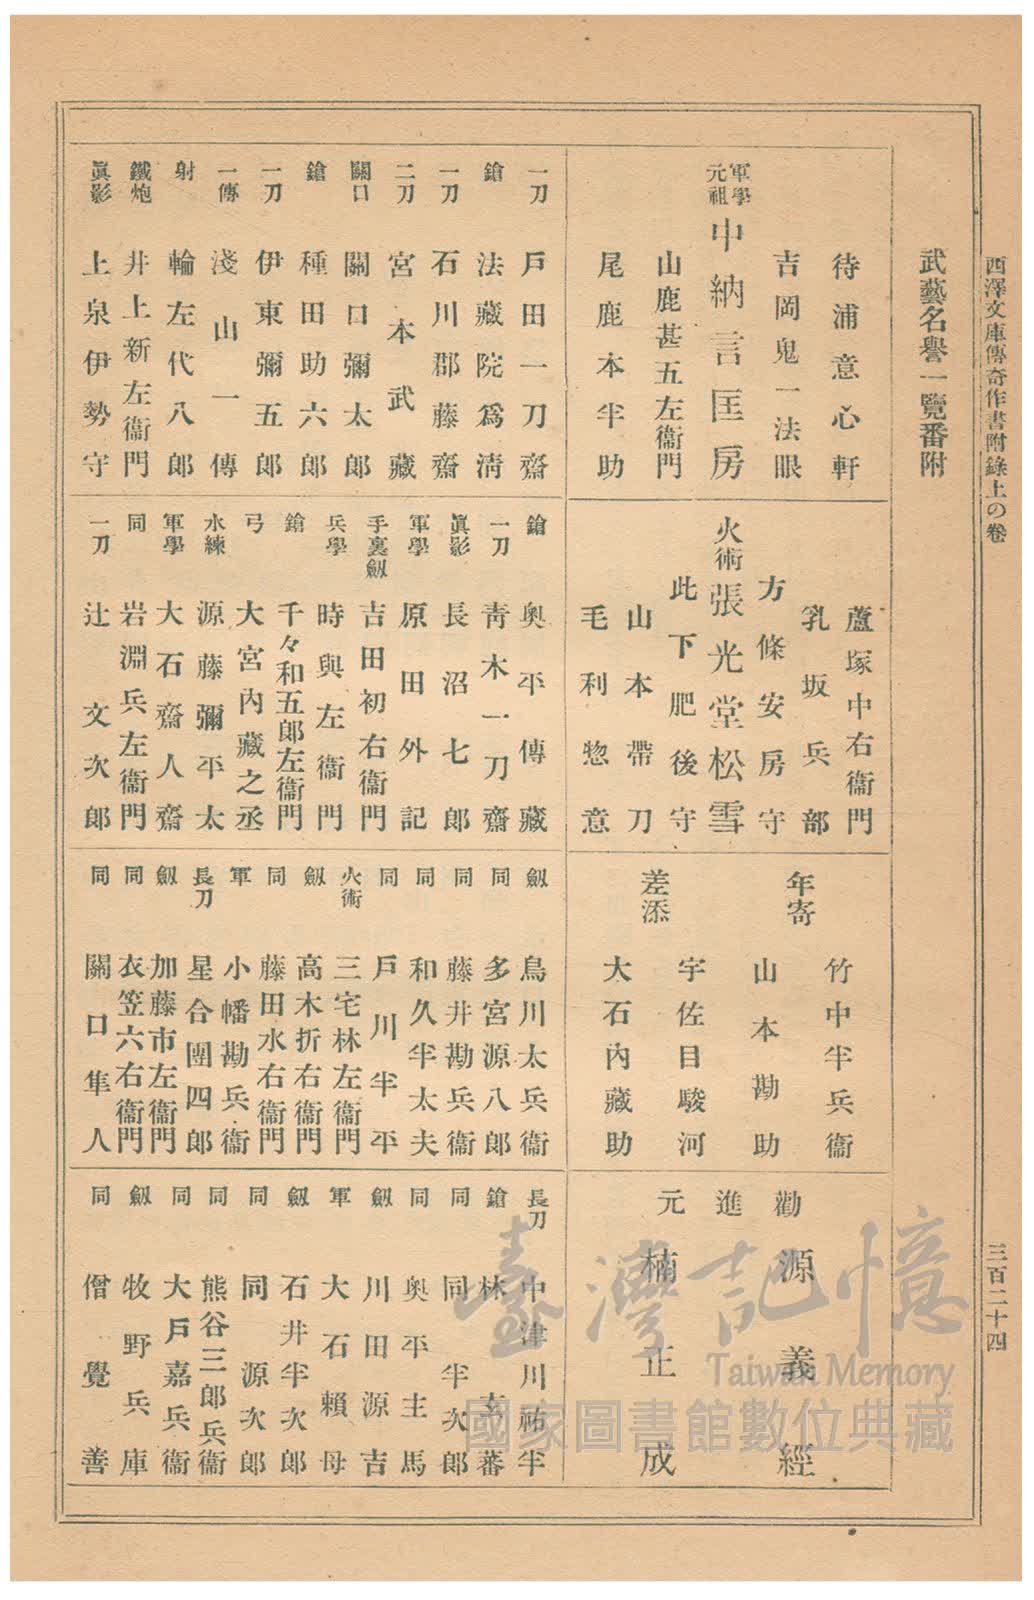 西澤文庫傳奇作書附錄上の卷
三百二十四
武藝名譽一覽番附
待浦意心軒
吉岡鬼一法眼
軍學元祖 中納言匡房
山鹿甚五左衞門
尾鹿本半助
蘆塚中右衞門
乳坂兵部
方條安房守
火術 張光堂松雪
此下肥後守
山本帶刀
毛利惣意
年寄
竹中半兵衞
山本勘助
差添
宇佐目駿河
大石內藏助
勸進元
源義經
楠正成
一刀 戶田一刀齋
鎗 法藏院爲淸
一刀 石川郡藤齋
二刀 宮本武藏
關口 關口彌太郎
鎗 種田助六郎
一刀 伊東彌五郎
一傳 淺山一傳
射 輪左代八郎
鐵炮 井上新左衞門
眞影 上泉伊勢守
鎗 奧平傳藏
一刀 靑木一刀齋
眞影 長沼七郎
軍學 原田外記
手裏劍 吉田初右衞門
兵學 時與左衞門
鎗 千々和五郎左衞門
弓 大宮內藏之丞
水練 源藤彌平太
軍學 大石齋人齋
同 岩淵兵左衞門
一刀 辻文次郎
劔 鳥川太兵衞
同 多宮源八郎
同 藤井勘兵衞
同 和久半太夫
同 戶川半平
火術 三宅林左衞門
劔 高木折右衞門
同 藤田水右衞門
軍 小幡勘兵衞
長刀 星合團四郎
劔 加藤市左衞門
同 衣笠六右衞門
同 關口隼人
長刀 中津川祐半
鎗 林玄蕃
同 同半次郎
同 奧平主馬
劔 川田源吉
軍 大石賴母
劔 石井半次郎
同 同源次郎
同 熊谷三郎兵衞
同 大戶嘉兵衞
劔 牧野兵庫
同 僧覺善
臺灣記憶
Taiwan Memory
國家圖書館數位典藏